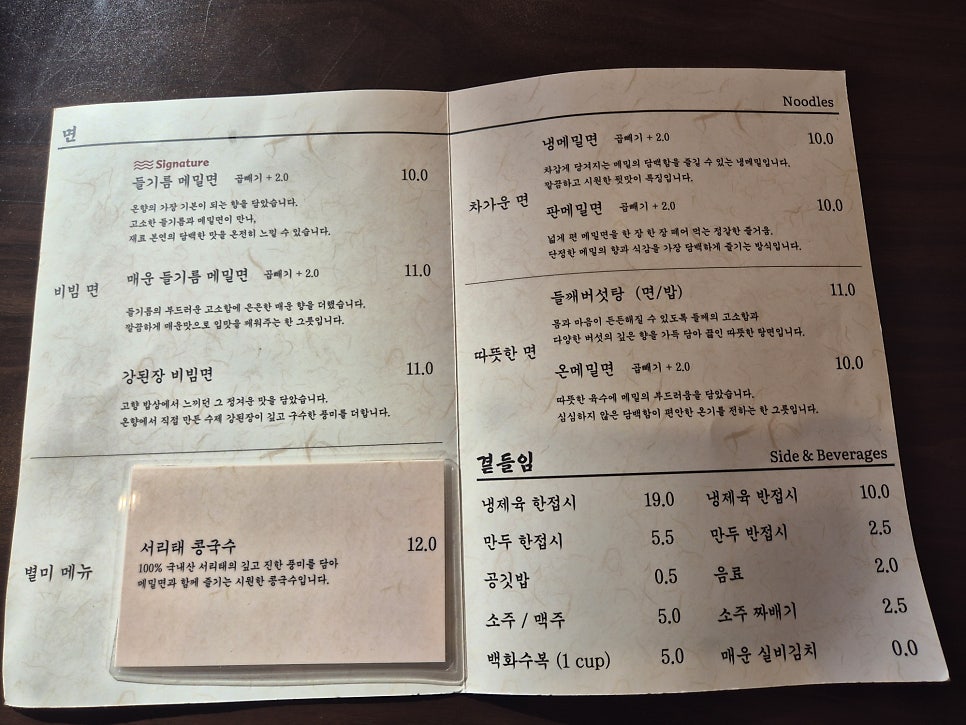 면
Signature
들기름 메밀면 곱빼기 + 2.0 10.0
온향의 가장 기본이 되는 향을 담았습니다.
고소한 들기름과 메밀면이 만나,
재료 본연의 담백한 맛을 온전히 느낄 수 있습니다.
비빔 면
매운 들기름 메밀면 곱빼기 + 2.0 11.0
들기름의 부드러운 고소함에 은은한 매운 향을 더했습니다.
깔끔하게 매운맛으로 입맛을 깨워주는 한 그릇입니다.
강된장 비빔면 11.0
고향 밥상에서 느끼던 그 정겨운 맛을 담았습니다.
온향에서 직접 만든 수제 강된장이 깊고 구수한 풍미를 더합니다.
별미 메뉴
서리태 콩국수 12.0
100% 국내산 서리태의 깊고 진한 풍미를 담아
메밀면과 함께 즐기는 시원한 콩국수입니다.
Noodles
차가운 면
냉메밀면 곱빼기 + 2.0 10.0
차갑게 당겨지는 메밀의 담백함을 즐길 수 있는 냉메밀입니다.
깔끔하고 시원한 뒷맛이 특징입니다.
판메밀면 곱빼기 + 2.0 10.0
넓게 편 메밀면을 한 장 한 장 떼어 먹는 정갈한 즐거움.
단정한 메밀의 향과 식감을 가장 담백하게 즐기는 방식입니다.
따뜻한 면
들깨버섯탕 (면/밥) 11.0
몸과 마음이 든든해질 수 있도록 들깨의 고소함과
다양한 버섯의 깊은 향을 가득 담아 끓인 따뜻한 탕면입니다.
온메밀면 곱빼기 + 2.0 10.0
따뜻한 육수에 메밀의 부드러움을 담았습니다.
심심하지 않은 담백함이 편안한 온기를 전하는 한 그릇입니다.
곁들임 Side & Beverages
냉제육 한접시 19.0 냉제육 반접시 10.0
만두 한접시 5.5 만두 반접시 2.5
공깃밥 0.5 음료 2.0
소주 / 맥주 5.0 소주 짜배기 2.5
백화수복 (1 cup) 5.0 매운 실비김치 0.0